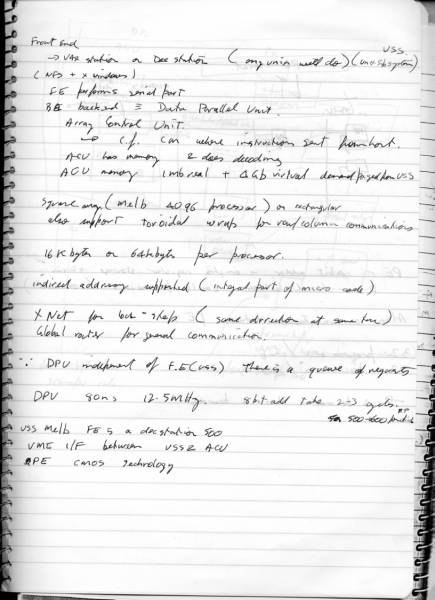 Front End
USS
→ VAX station or Dec station (any unix will do) (unix subsystem)
(NFS + X windows)
FE performs serial part
BE backend ≡ Data Parallel Unit.
Array Control Unit.
→ c.f. CM where instructions sent from host.
ACU has memory & does decoding
ACU memory 1mb real + 4Gb virtual demand paged from USS
Square array (Melb 4096 processor) or rectangular
also support toroidal wraps for row/column communications
16 Kbytes or 64kbytes per processor.
indirect addressing supported (integral part of micro code)
X Net for (same direction at same time)
Global router for general communication.
∵ DPU independent of F.E (USS) there is a queue of requests
DPU 80ns 12.5MHz. 8bit add take 2-3 cycles.
500-600
USS Melb FE is a decstation 500
VME I/F between USS & ACU
PE CMOS technology